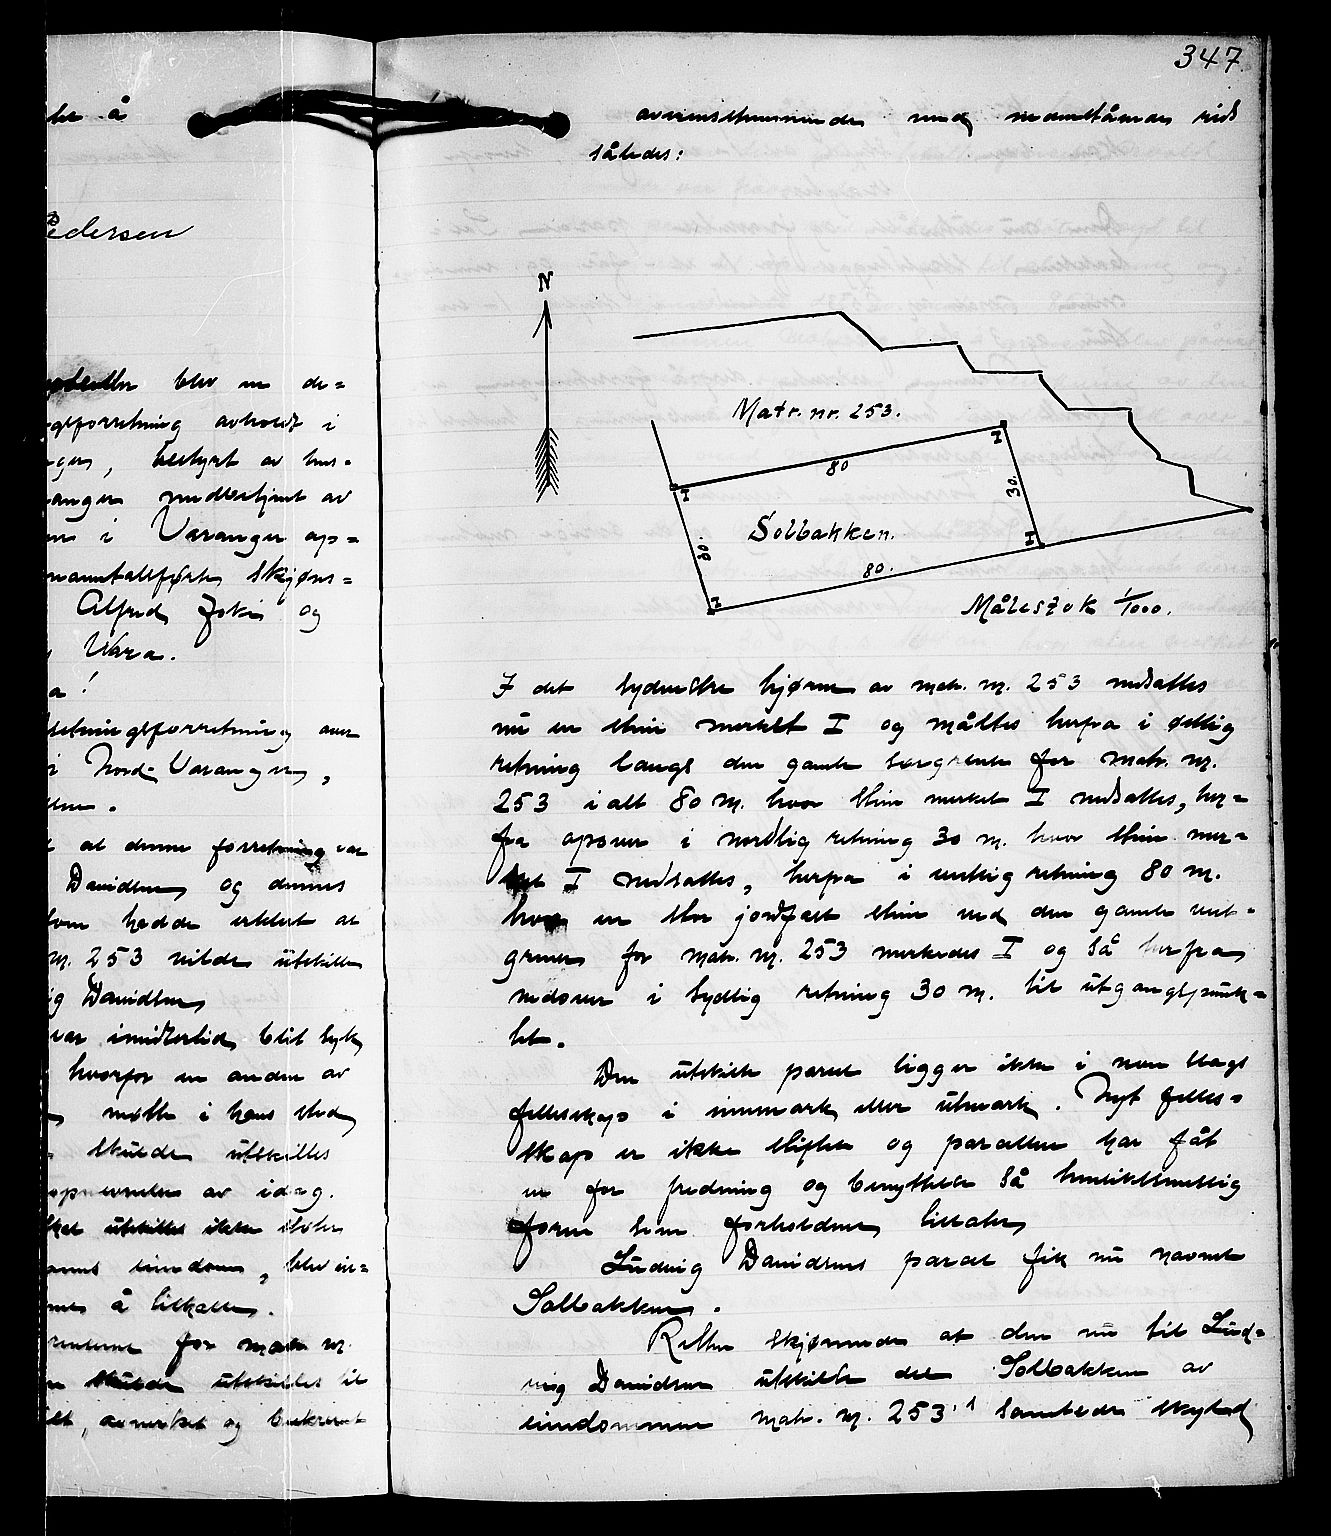 let å
Pedersen
blev en de=
forretning avholdt i
bestyrt av hus-
av
i Varanger op=
skjøns=
Alfred Joki og
Vara.
a!
forretning over
i Nord-Varanger,
at denne forretning var
Davidsen og dennes
som hadde erklært at
nr. 253 vilde utskille
Davidsen
var imidlertid blit syk
hvorfor en anden av
møtte i hans sted
skulde utskilles
av idag.
utskilles ikke
eiendom, blev in=
å tilkalle.
for matr. nr.
skulde utskilles til
avmerket og beskrevet
347.
overensstemmende med nedenstående rids
således:
N
Matr. nr. 253.
I
I
80
30.
Solbakken.
30.
I
80.
I
Målestok 1/1000.
I det sydvestre hjørne av matr. nr. 253 nedsattes
nu en sten merket I og måltes herfra i østlig
retning langs den gamle sørgrense for matr. nr.
253 i alt 80 m. hvor sten merket I nedsattes, her=
fra opover i nordlig retning 30 m. hvor sten mer=
ket I nedsattes, herfra i vestlig retning 80 m.
hvor en stor jordfast sten ved den gamle vest-
grense for matr. nr. 253 merkedes I og så herfra
nedover i sydlig retning 30 m. til utgangspunk=
tet.
Den utskilte parcel ligger ikke i noen slags
fellesskap i innmark eller utmark. Nyt felles=
skap er ikke stiftet og parcellen har fåt
en for fredning og benyttelse så hensiktsmessig
form som forholdene tillater.
Ludvig Davidsens parcel fik nu navnet
Solbakken.
Retten skjønnede at den nu til Lud=
vig Davidsen utskilte del Solbakken av
eiendommen matr. nr. 253,1 samlede skyld